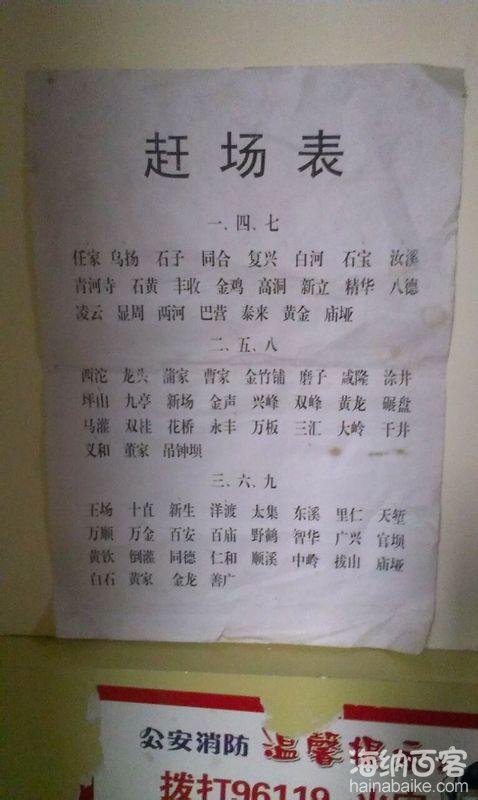 赶场表
一、四、七
任家 乌扬 石子 同合 复兴 白河 石宝 汝溪
青河寺 石黄 丰收 金鸡 高洞 新立 精华 八德
凌云 显周 两河 巴营 泰来 黄金 庙垭
二、五、八
西沱 龙头 蒲家 曹家 金竹铺 磨子 咸隆 涂井
坪山 九亭 新场 金声 兴峰 双峰 黄龙 碾盘
马灌 双桂 花桥 永丰 万板 三汇 大岭 干井
义和 董家 吊钟坝
三、六、九
王场 十直 新生 洋渡 太集 东溪 里仁 天堑
万顺 万金 百安 百庙 野鹤 智华 广兴 官坝
黄钦 倒灌 同德 仁和 顺溪 中岭 拔山 庙垭
白石 黄家 金龙 善广
公安消防 温馨提示
拨打96119
海纳百客
hainabaike.com